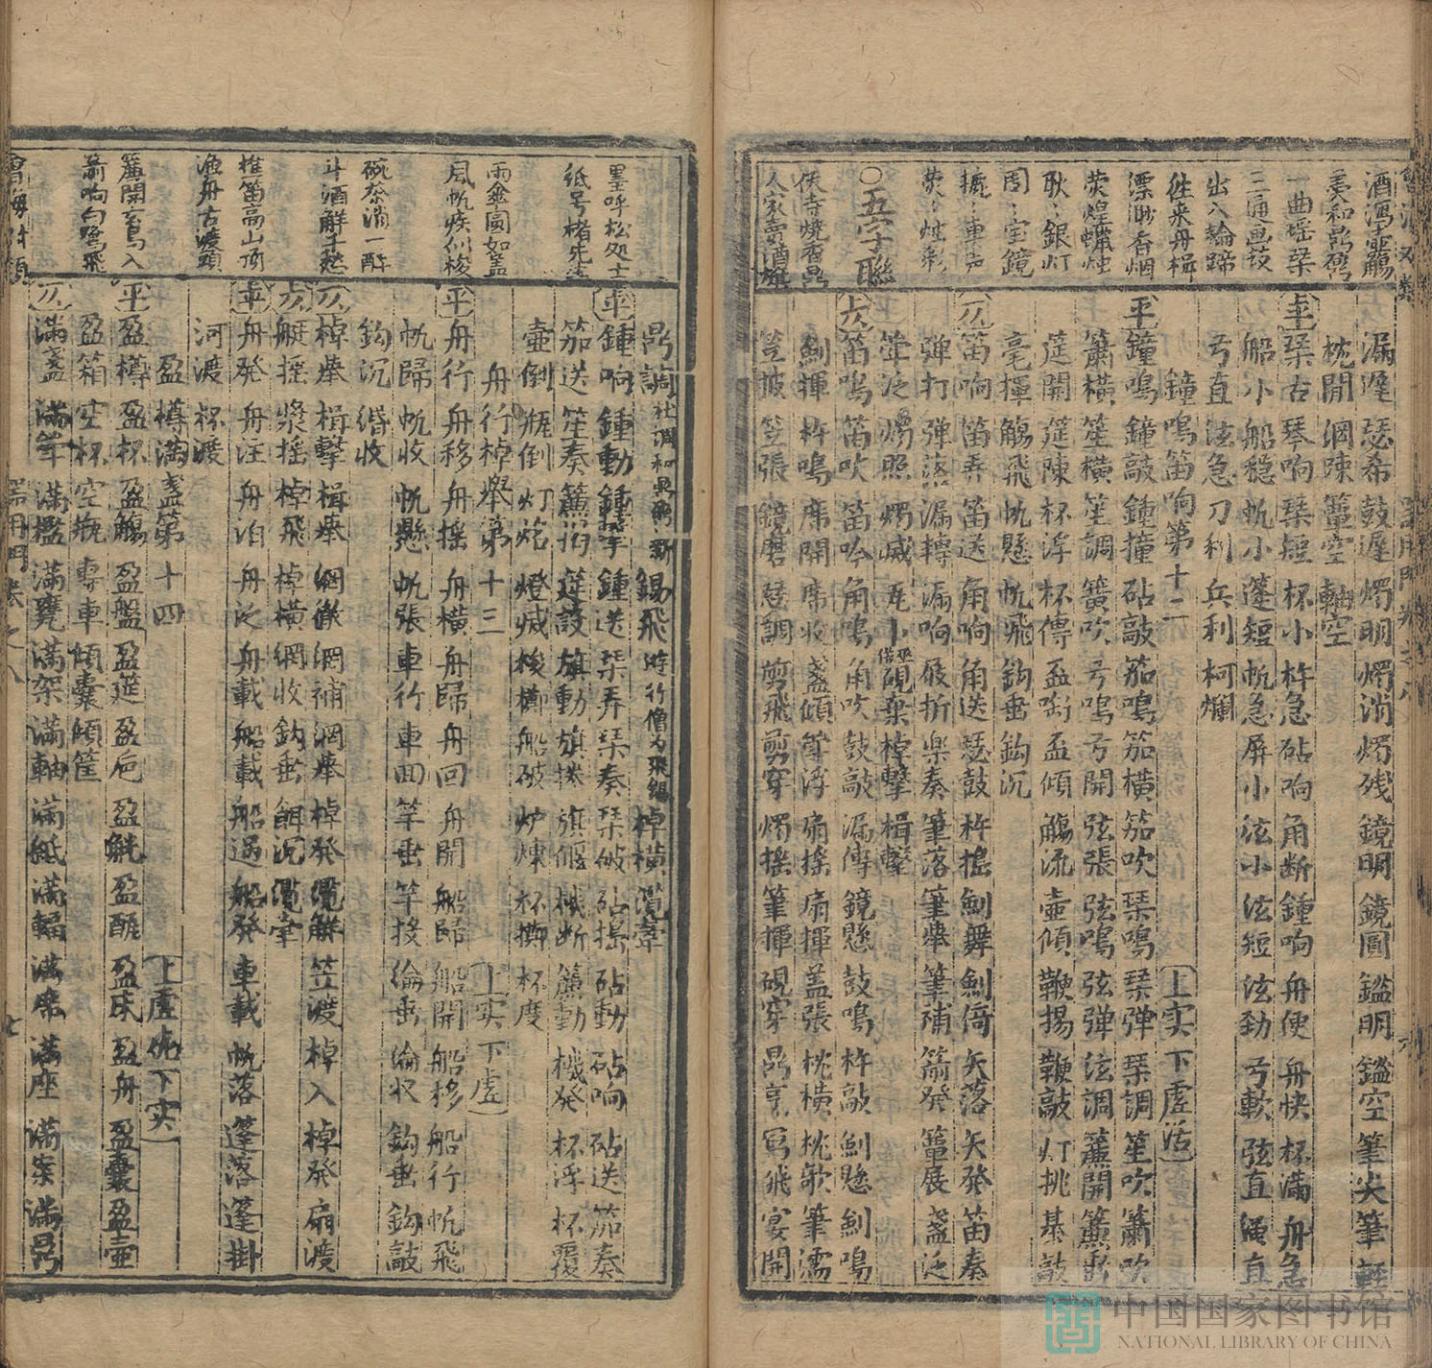 酒瀉壺觴
羹和鼎鼐
一曲瑤琹
三通畫鼓
出入輪蹄
徃来舟楫
漂缈香烟
荧煌蠟燭
耿〻銀灯
團〻宝鏡
轆〻車声
荧〻燭彩
○五字聯
漏遲 瑟希 鼓遲 燭明 燭消 燭残 鏡明 鏡圓 鑑明 鑑空 筆尖 筆輕
枕閒 網踈 簟空 軸空
平 琹古 琴响 琹短 杯小 杵急 砧响 角断 鍾响 舟便 舟快 杯满 舟急
船小 船穏 帆小 篷短 帆急 屏小 弦小 弦短 弦劲 弓軟 弦直 绳直
弓直 弦急 刀利 兵利 柯爛
鐘鳴笛响第十二 上实下虚活
平 鐘鳴 鐘敲 鍾撞 砧敲 笳鳴 笳横 笳吹 琹鳴 琹弹 琹調 笙吹 簫吹
簫横 笙横 笙調 簧吹 弓鳴 弓開 弦張 弦鳴 弦弹 弦調 簾開 簾垂
筵開 筵陳 杯浮 杯傳 盃啣 盃傾 觴流 壷傾 鞭揚 鞭敲 灯挑 棊敲
毫揮 觴飛 帆懸 帆飛 鈎垂 鈎沉
仄 笛响 笛弄 笛送 角响 角送 瑟鼓 杵搖 劍舞 劍倚 矢落 矢發 笛奏
弹打 弹落 漏轉 漏响 屐折 樂奏 筆落 筆举 筆補 箭發 簟展 盞泛
燭照 燭滅 硯棄 棹擊 楫擊
仄 笛鳴 笛吹 笛吟 角鳴 角吹 鼓敲 漏傳 鏡懸 鼓鳴 杵敲 劍懸 劍鳴
劍揮 杵鳴 席開 席收 盞傾 尊浮 扇搖 扇揮 蓋張 枕横 枕欹 筆濡
笠披 笠張 鏡磨 瑟調 剪飛 剪穿 燭搖 筆揮 硯穿 鼎烹 舄飛 宴開
墨呼松処士
紙号楮先生
雨傘圓如蓋
風帆疾似梭
碗茶消一醉
斗酒解千愁
樵笛高山頂
漁舟古渡頭
簾開玄鳥入
箭响白鷺飛
鼎調 錫飛 遊行僧为飛錫 棹横 纜牵
平 鍾响 鍾動 鍾擊 鍾送 琹弄 琹奏 琹破 砧搗 砧動 砧响 砧送 笳奏
笳送 笙奏 簾捲 筵設 旗動 旗捲 旗偃 機断 簾動 機發 杯浮 杯覆
壷倒 瓶倒 灯灺 燈滅 梭擲 船破 炉煉 杯擲 杯度
舟行棹舉第十三 上实下虚
平 舟行 舟移 舟搖 舟横 舟歸 舟回 舟開 船歸 船開 船移 船行 帆飛
帆歸 帆收 帆懸 帆張 車行 車回 竿垂 竿投 綸垂 綸收 鈎垂 鈎敲
鈎沉 緡收
仄 棹举 楫擊 楫举 網徹 網補 網举 棹發 纜解 笠渡 棹入 棹發 扇渡
仄 艇摇 漿摇 棹飛 棹横 網收 鈎垂 餌沉 纜牵
平 舟發 舟注 舟泊 舟泛 舟載 船載 船過 船發 車載 帆落 篷落 篷掛
河渡 杯渡
盈樽滿盞第十四 上虛死下实
平 盈樽 盈杯 盈觴 盈盤 盈筵 盈卮 盈觥 盈醆 盈床 盈舟 盈囊 盈壷
盈箱 空杯 空瓶 專車 傾囊 傾筐
仄 滿盞 滿竿 滿檻 滿甕 滿架 滿軸 滿紙 滿輻 滿席 滿座 滿案 滿鼎
中国国家图书馆
NATIONAL LIBRARY OF CHINA